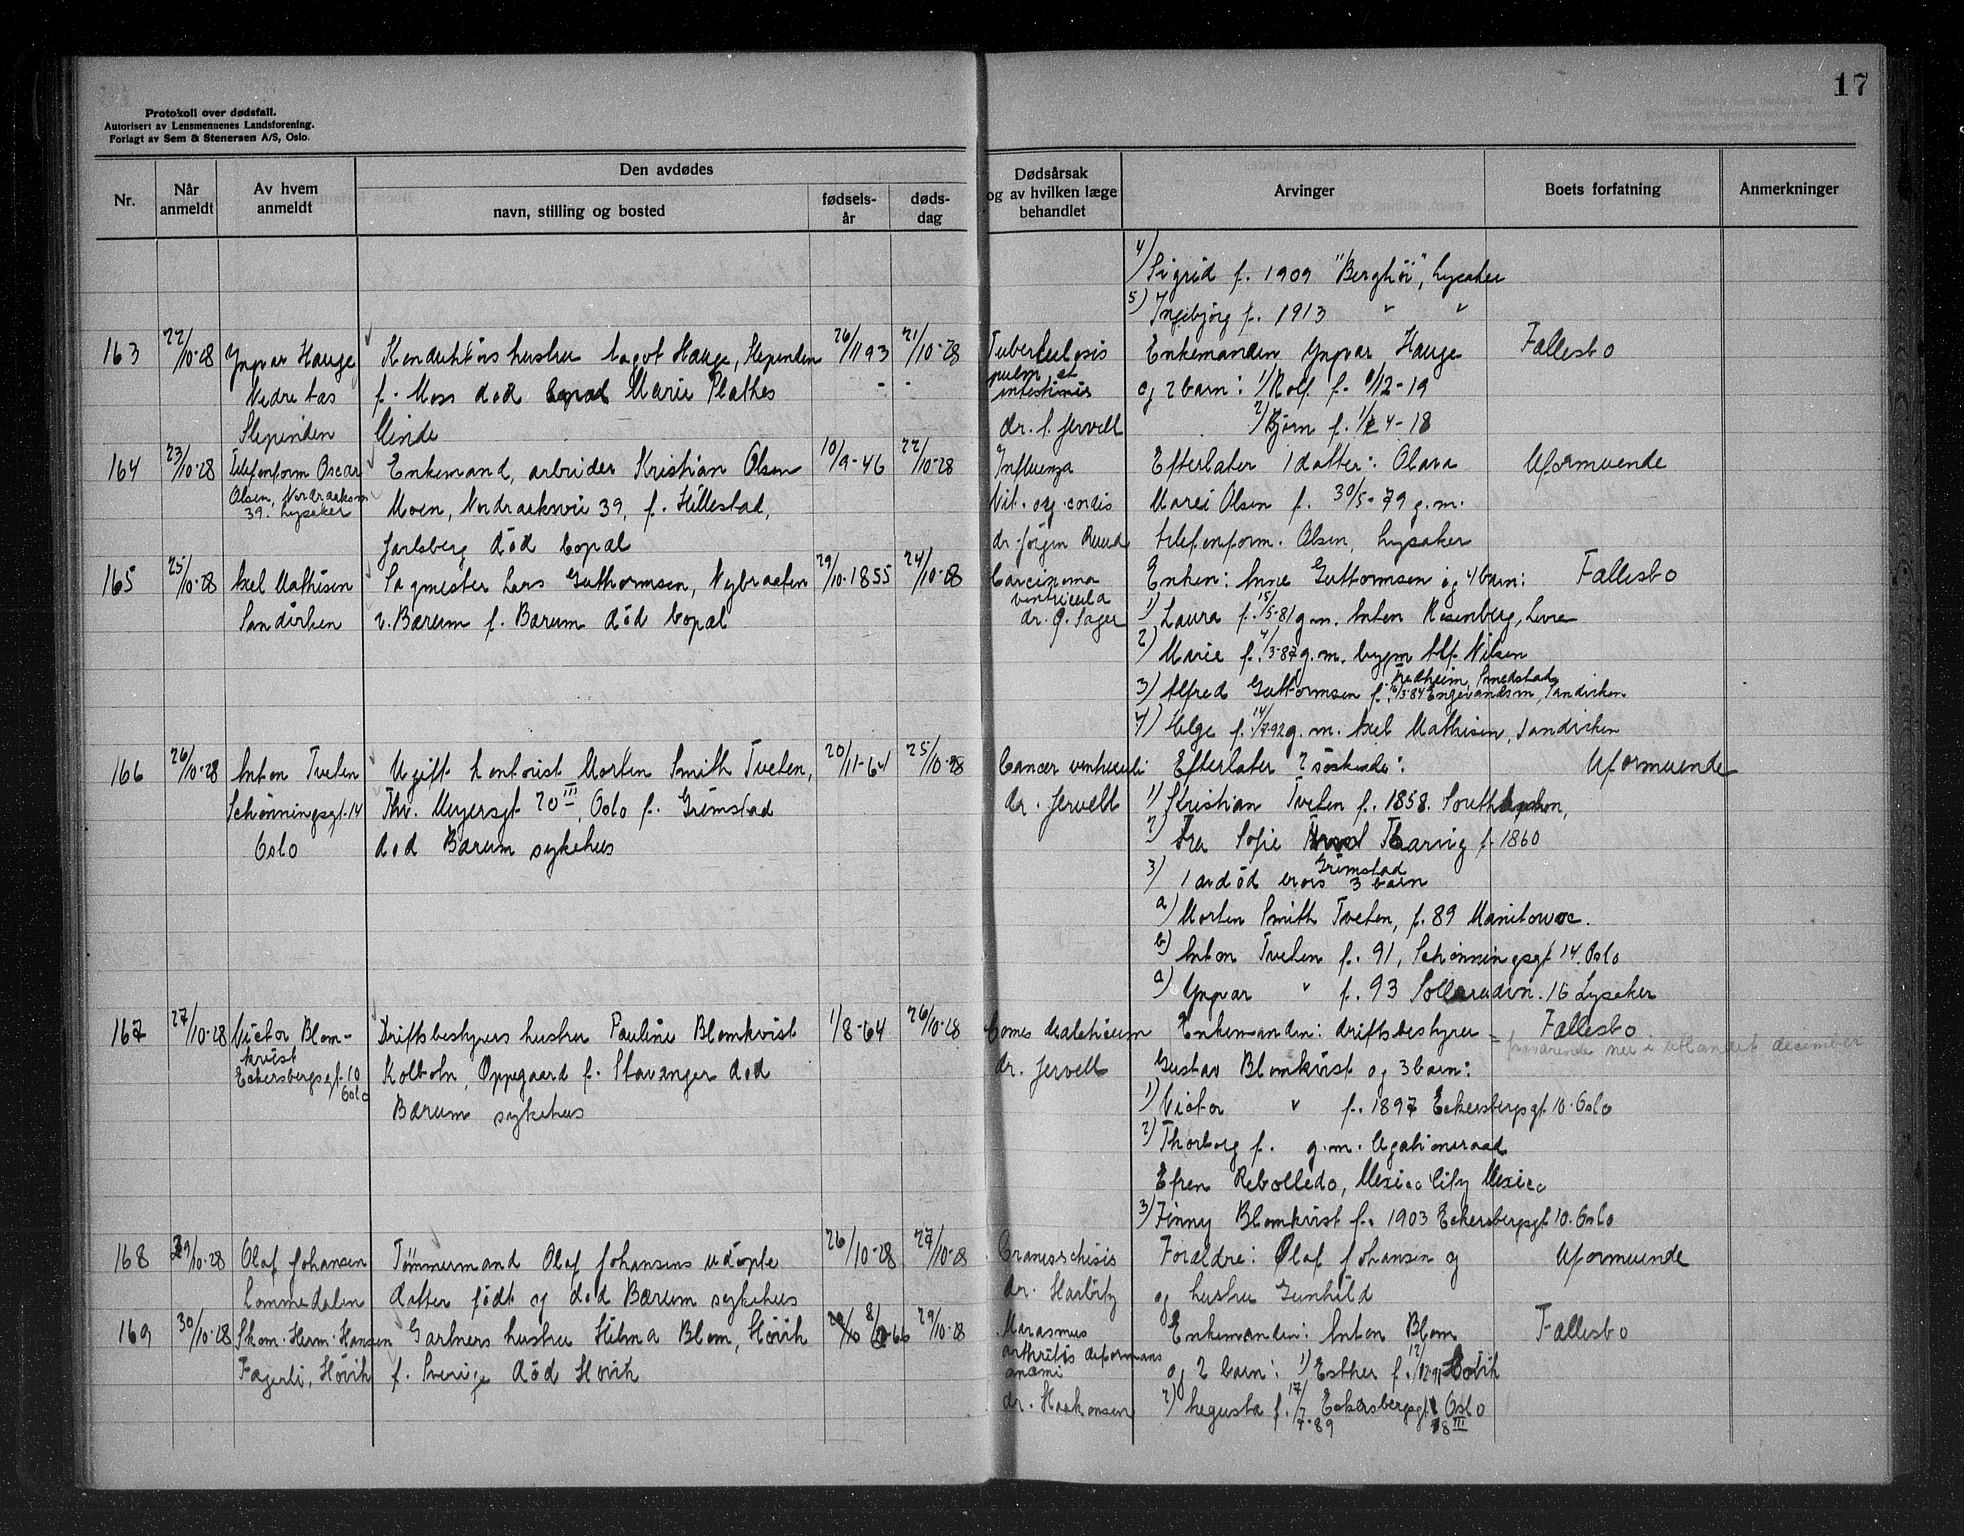 17
Protokoll over dødsfall.
Autorisert av Lensmennenes Landsforening.
Forlagt av Sem & Stenersen A/S, Oslo.
Nr.
Når anmeldt
Av hvem anmeldt
Den avdødes
navn, stilling og bosted
fødsels-år
døds-dag
Dødsårsak og av hvilken læge behandlet
Arvinger
Boets forfatning
Anmerkninger
4) Sigrid f. 1909 "Berghöi", Lysaker
5) Ingebjørg f. 1913 " "
163 22/10-28 Yngvar Hauge 26/11 93 21/10-28 Tuberkulosis Enkemanden Yngvar Hauge Fællesbo
Nedre Aas f. Moss död Marie Plathes pulm et intestinis og 2 barn: 1) Rolf f. 12-19
Slependen Minde dr. Jervell 2) Bjørn f. 4-18
164 23/10-28 Telefonform Oscar Enkemand, arbeider Kristian Olsen 10/9-46 22/10-28 Influenza Efterlater 1 datter: Olava Uformuende
Olsen, Nordraaksvei Moen, Nordraaksvei 39, f. Hillestad, Vit. org. cordis Olsen f. 30/5-79 g.m.
39. Lysaker Jarlsberg död Copal dr. Jörgen Ruud telefonform. Olsen, Lysaker
165 25/10-28 Axel Mathisen Sagmester Lars Guthormsen, Nybraaten 29/10-1855 24/10-28 Carcinoma Enken: Anne Guttormsen og 4 barn: Fællesbo
Sandviken v. Bærum f. Bærum död Copal ventricula dr. Sager 1) Laura f. 15/5-81 g.m. Anton Rosenberg,
2) Marie f. 4/3-87 g.m. bygm Alf. Nilsen
Fredheim, Smedstad
3) Alfred Guttormsen f. 16/3-84 Engervandsvn, Sandviken
4) Helge f. 14/7-92 g.m. Axel Mathisen, Sandviken
166 26/10-28 Anton Tveten Ugift kontorist Morten Smith Tveten, 20/11-64 25/10-28 Cancer ventriculi Efterlater 2 söskende: Uformuende
Schönningsgt. 14 Thv. Meyersgt 20 III, Oslo f. Grimstad dr. Jervell 1) Kristian Tveten f. 1858.
Oslo död Bærum sykehus 2) Fru Sofie f. 1860
Grimstad
3) 1 avdöd brors 3 barn
a) Morten Smith Tveten, f. 89 Manitowoc.
b) Anton Tveten f. 91, Schönningsgt 14. Oslo
c) Yngvar " f. 93 Sollerudvn. 16 Lysaker
167 27/10-28 Victor Blom- Driftsbestyrers hustru Pauline Blomkvist 1/8-64 26/10-28 Enkemanden: driftsbestyrer Fællesbo
kvist Kolbotn, Oppegaard f. Stavanger död dr. Jervell Gustav Blomkvist og 3 barn: i utlandet december
Eckersbergsgt. 10 Oslo Bærum sykehus 1) Victor " f. 1897 Eckersbergsgt 10. Oslo
2) Thorborg f. g.m. legationsraad
Efren Rebolledo, Mexico City Mexico
3) Finny Blomkvist f. 1903 Eckersbergsgt 10. Oslo
168 29/10-28 Olaf Johansen Tömmermand Olaf Johansens udöpte 26/10-28 27/10-28 Forældre: Olaf Johansen og Uformuende
Lommedalen datter födt og död Bærum sykehus dr. Harbitz og hustru Gunhild
169 30/10-28 Skom. Herm. Hansen Gartners hustru Hilma Blom, Hövik 8/ -66 29/10-28 Marasmus Enkemanden: Anton Blom Fællesbo
Fagerli, Hövik f. Sverige död Hövik arthritis deformans anæmi og 2 barn: 1) Esther f. 12/12-91 Hövik
dr. Haakonsen 2) Augusta f. 17/7-89 Eckersbergsgt Oslo